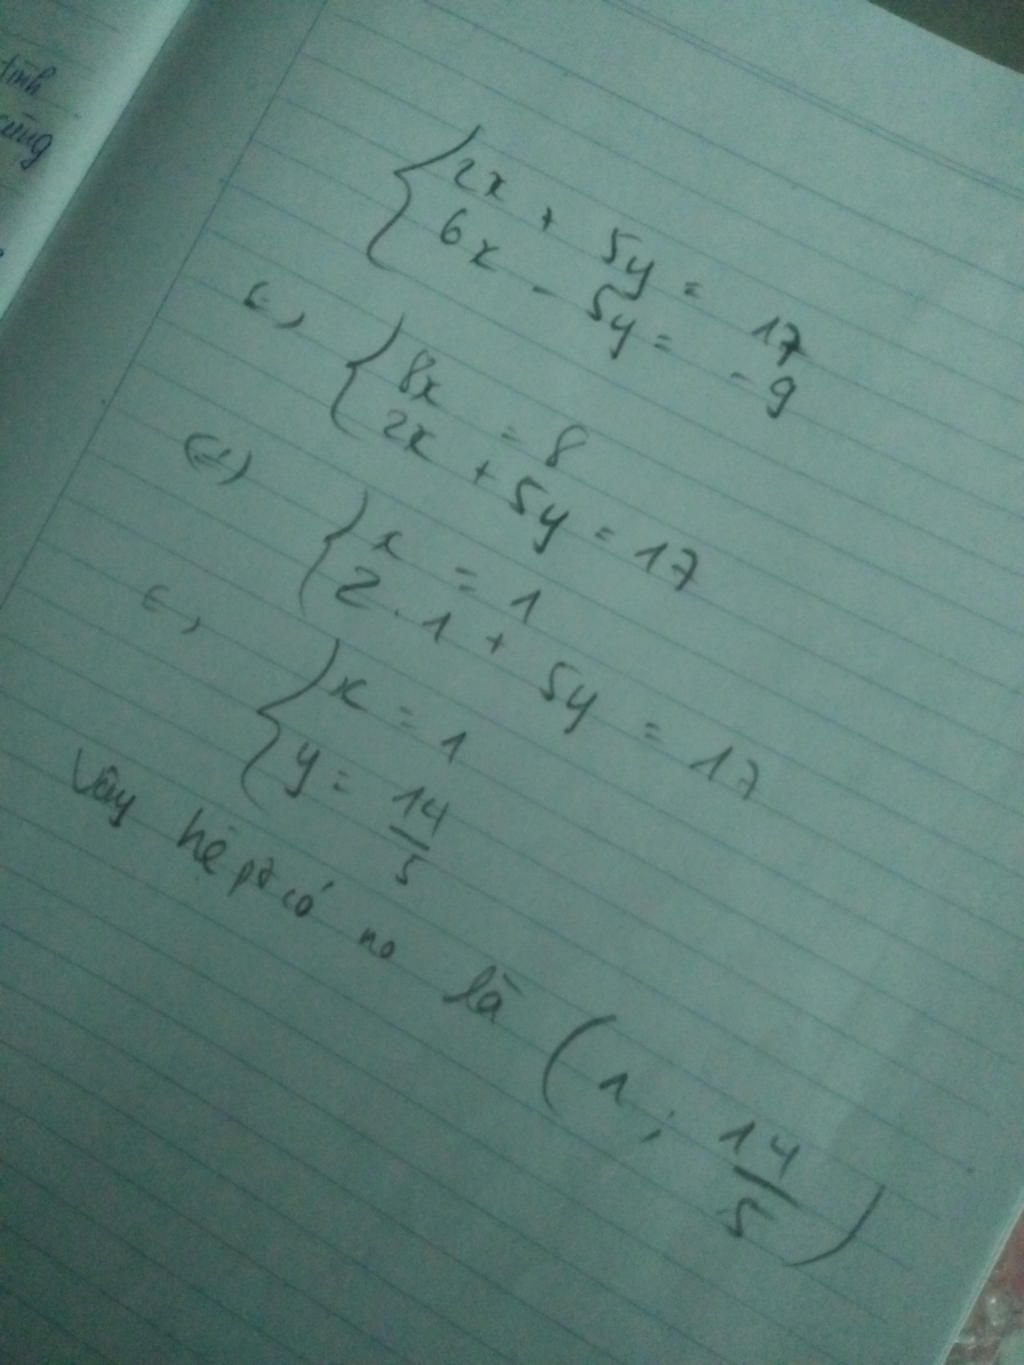 tính
cùng
{ 2x + 5y = 17
6x - 5y = -9
<=> { 8x = 8
2x + 5y = 17
(=) { x = 1
2 . 1 + 5y = 17
<=> { x = 1
y = 14/5
Vậy hệ pt có no là (1 ; 14/5)